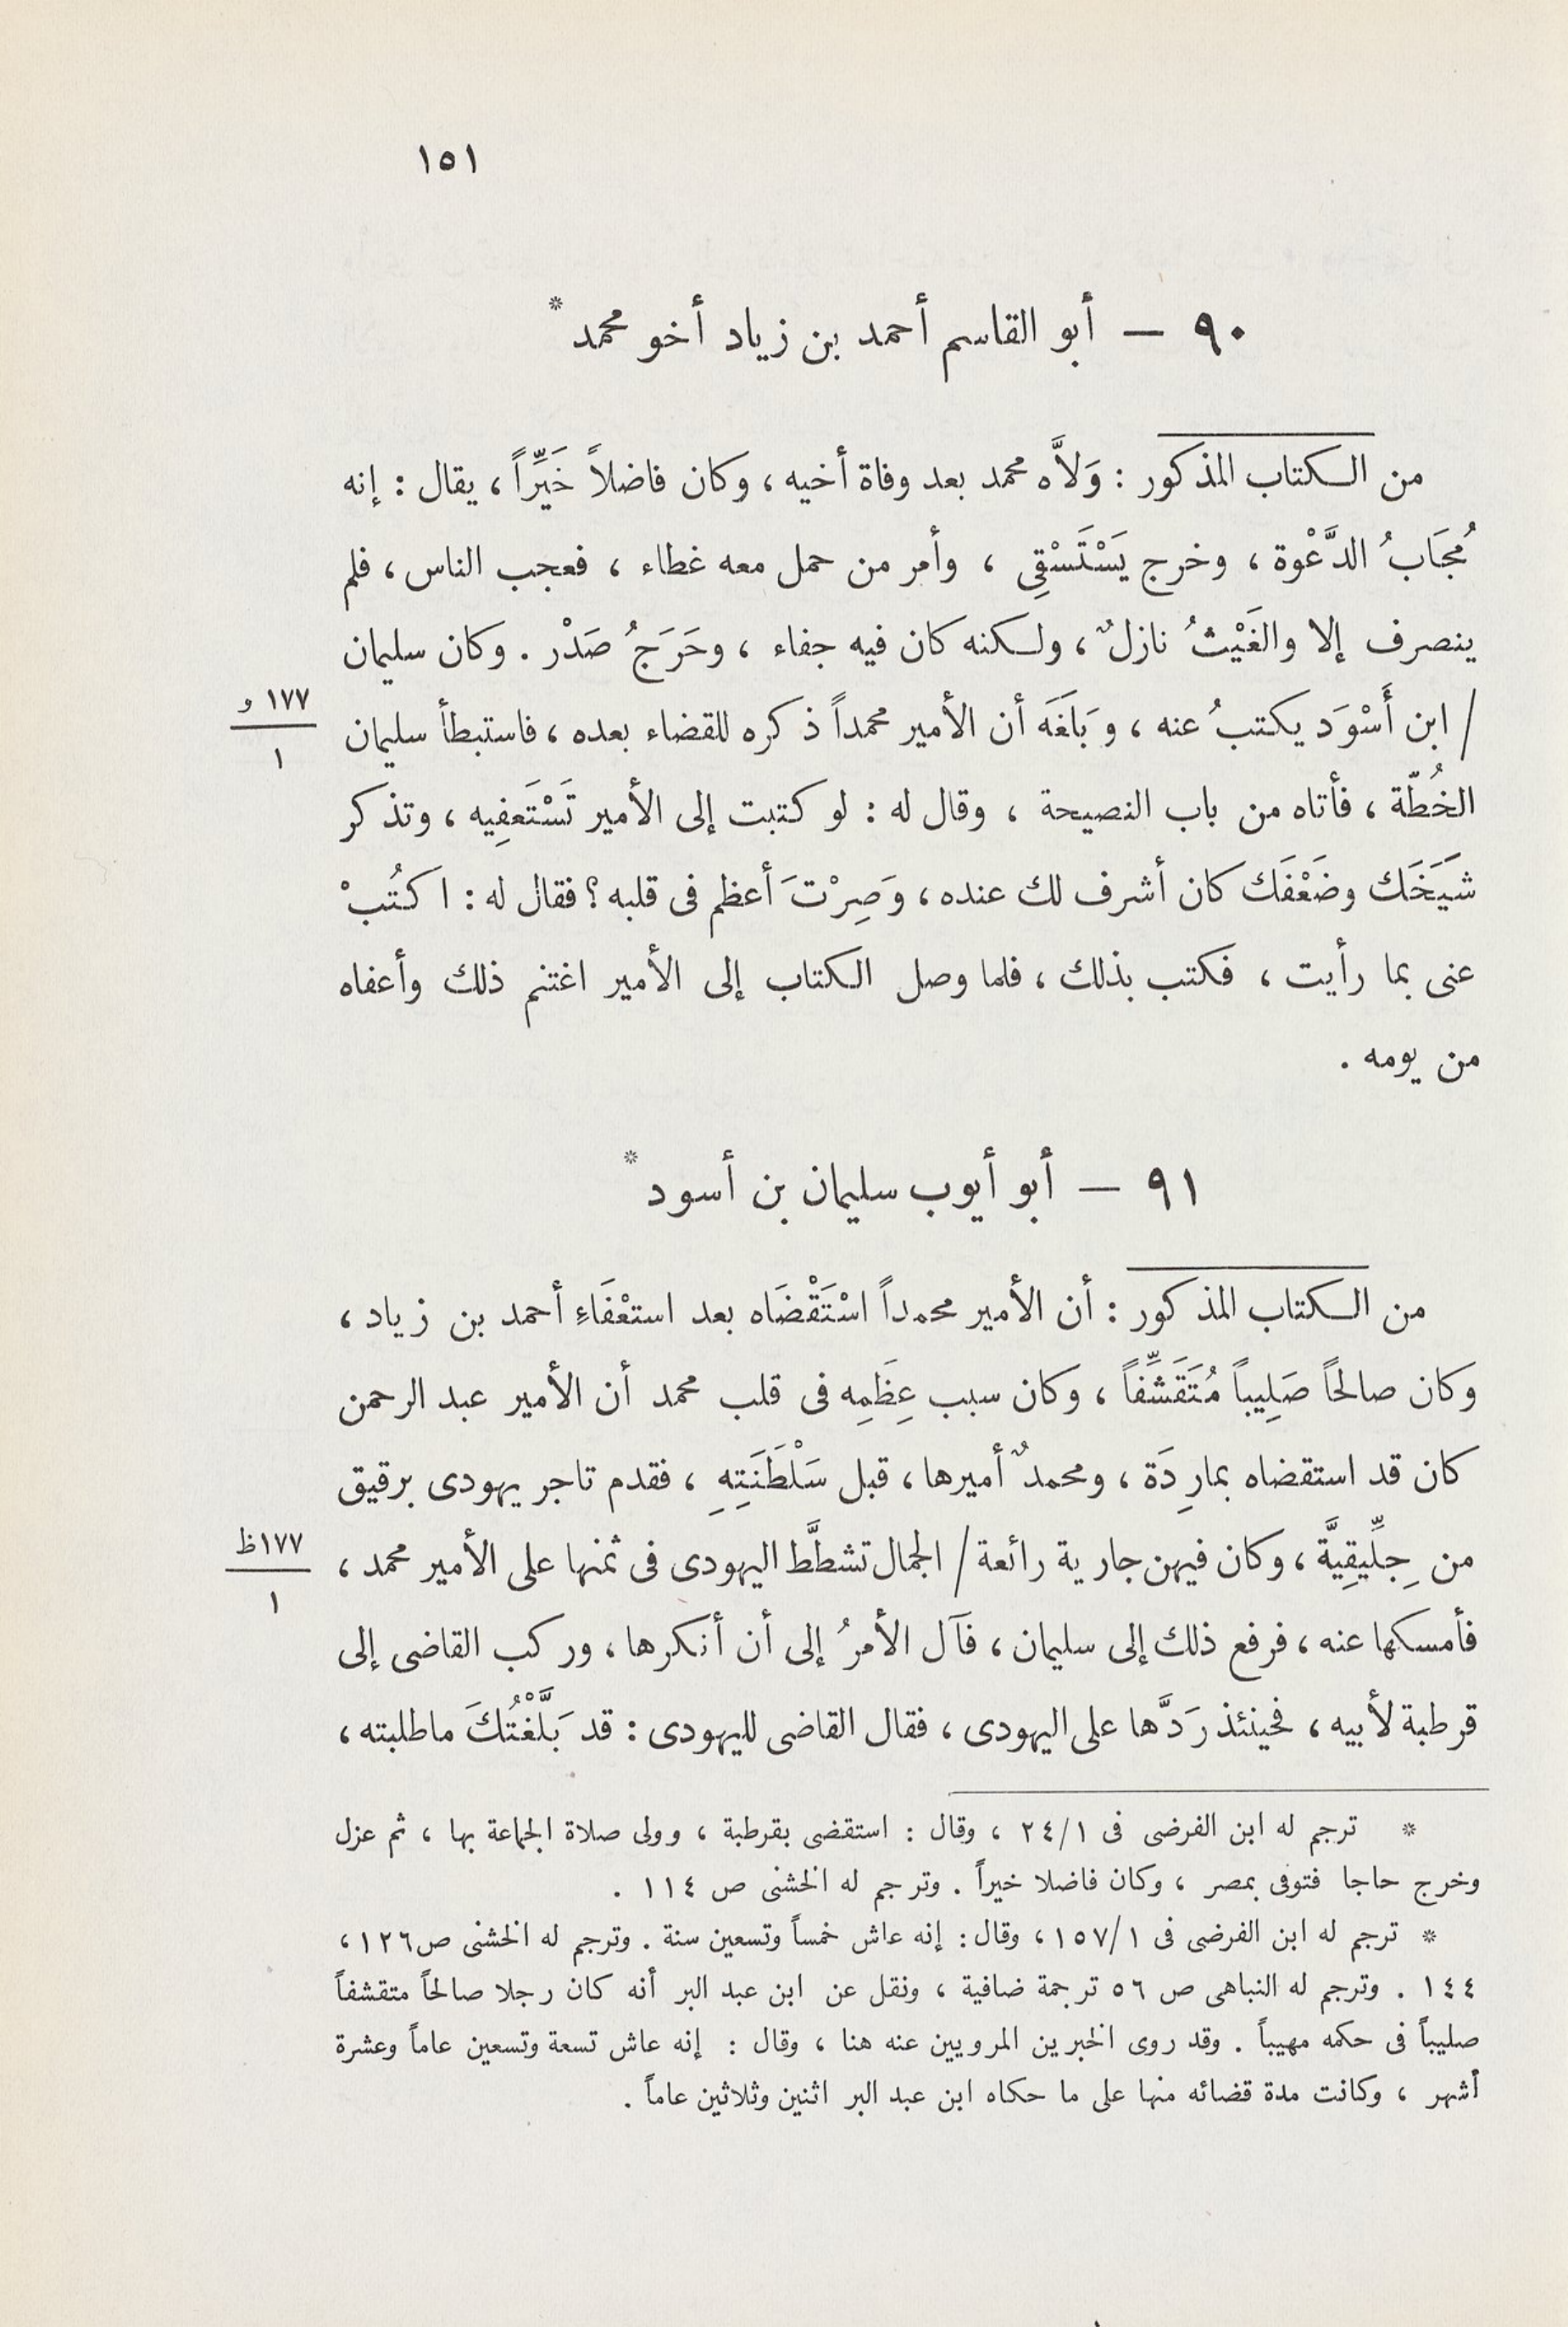 ١٥١
٩٠ — أبو القاسم أحمد بن زياد أخو محمد *
من الكتاب المذكور : وَلاَّه محمد بعد وفاة أخيه ، وكان فاضلاً خَيِّراً ، يقال : إنه
مُجَابُ الدَّعْوة ، وخرج يَسْتَسْقِى ، وأمر من حمل معه غطاء ، فعجب الناس ، فلم
ينصرف إلا والغَيْثُ نازلٌ ، ولكنه كان فيه جفاء ، وحَرَجُ صَدْر . وكان سليمان
/ ابن أَسْوَد يكتبُ عنه ، وبَلَغَه أن الأمير محمداً ذكره للقضاء بعده ، فاستبطأ سليمان
١٧٧ و
١
الخُطّة ، فأتاه من باب النصيحة ، وقال له : لو كتبت إلى الأمير تَسْتَعفِيه ، وتذكر
شَيَخَك وضَعْفَك كان أشرف لك عنده ، وَصِرْتَ أعظم فى قلبه ؟ فقال له : اكتُبْ
عنى بما رأيت ، فكتب بذلك ، فلما وصل الكتاب إلى الأمير اغتنم ذلك وأعفاه
من يومه .
٩١ — أبو أيوب سليمان بن أسود *
من الكتاب المذكور : أن الأمير محمداً اسْتَقْضَاه بعد استعْفَاءِ أحمد بن زياد ،
وكان صالحاً صَلِيباً مُتَقَشِّفاً ، وكان سبب عِظَمِه فى قلب محمد أن الأمير عبد الرحمن
كان قد استقضاه بمارِدَة ، ومحمدٌ أميرها ، قبل سَلْطَنَتِهِ ، فقدم تاجر يهودى برقيق
من جِلِّيقِيَّة ، وكان فيهن جارية رائعة / الجمال تشطَّط اليهودى فى ثمنها على الأمير محمد ،
١٧٧ظ
١
فأمسكها عنه ، فرفع ذلك إلى سليمان ، فآل الأمرُ إلى أن أنكرها ، وركب القاضى إلى
قرطبة لأبيه ، فحينئذ رَدَّها على اليهودى ، فقال القاضى لليهودى : قد بَلَّغْتُكَ ماطلبته ،
* ترجم له ابن الفرضى فى ٢٤/١ ، وقال : استقضى بقرطبة ، وولى صلاة الجماعة بها ، ثم عزل
وخرج حاجا فتوفى بمصر ، وكان فاضلا خيراً . وترجم له الخشنى ص ١١٤ .
* ترجم له ابن الفرضى فى ١٥٧/١ ، وقال : إنه عاش خمساً وتسعين سنة . وترجم له الخشنى ص١٢٦ ،
١٤٤ . وترجم له النباهى ص ٥٦ ترجمة ضافية ، ونقل عن ابن عبد البر أنه كان رجلا صالحاً متقشفاً
صليباً فى حكمه مهيباً . وقد روى الخبرين المرويين عنه هنا ، وقال : إنه عاش تسعة وتسعين عاماً وعشرة
أشهر ، وكانت مدة قضائه منها على ما حكاه ابن عبد البر اثنين وثلاثين عاماً .